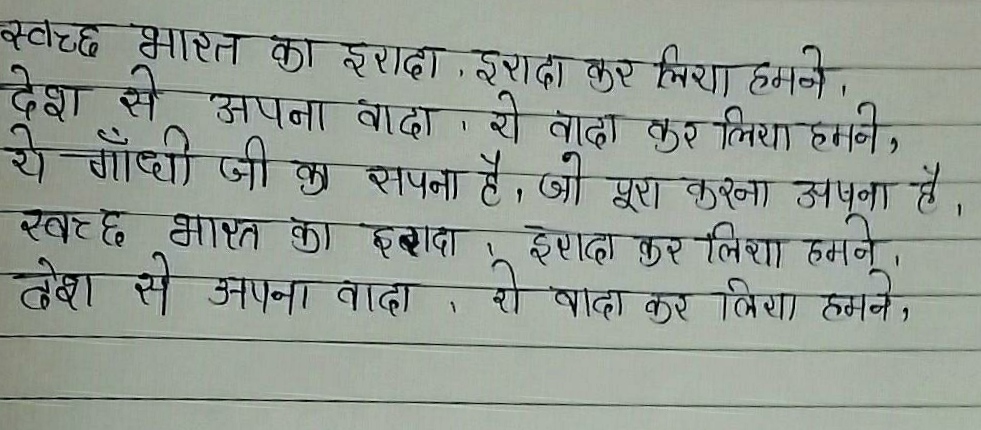 स्वच्छ भारत का इरादा, इरादा कर लिया हमने,
देश से अपना वादा, ये वादा कर लिया हमने,
ये गाँधी जी का सपना है, जो पूरा करना अपना है,
स्वच्छ भारत का इरादा, इरादा कर लिया हमने,
देश से अपना वादा, ये वादा कर लिया हमने,